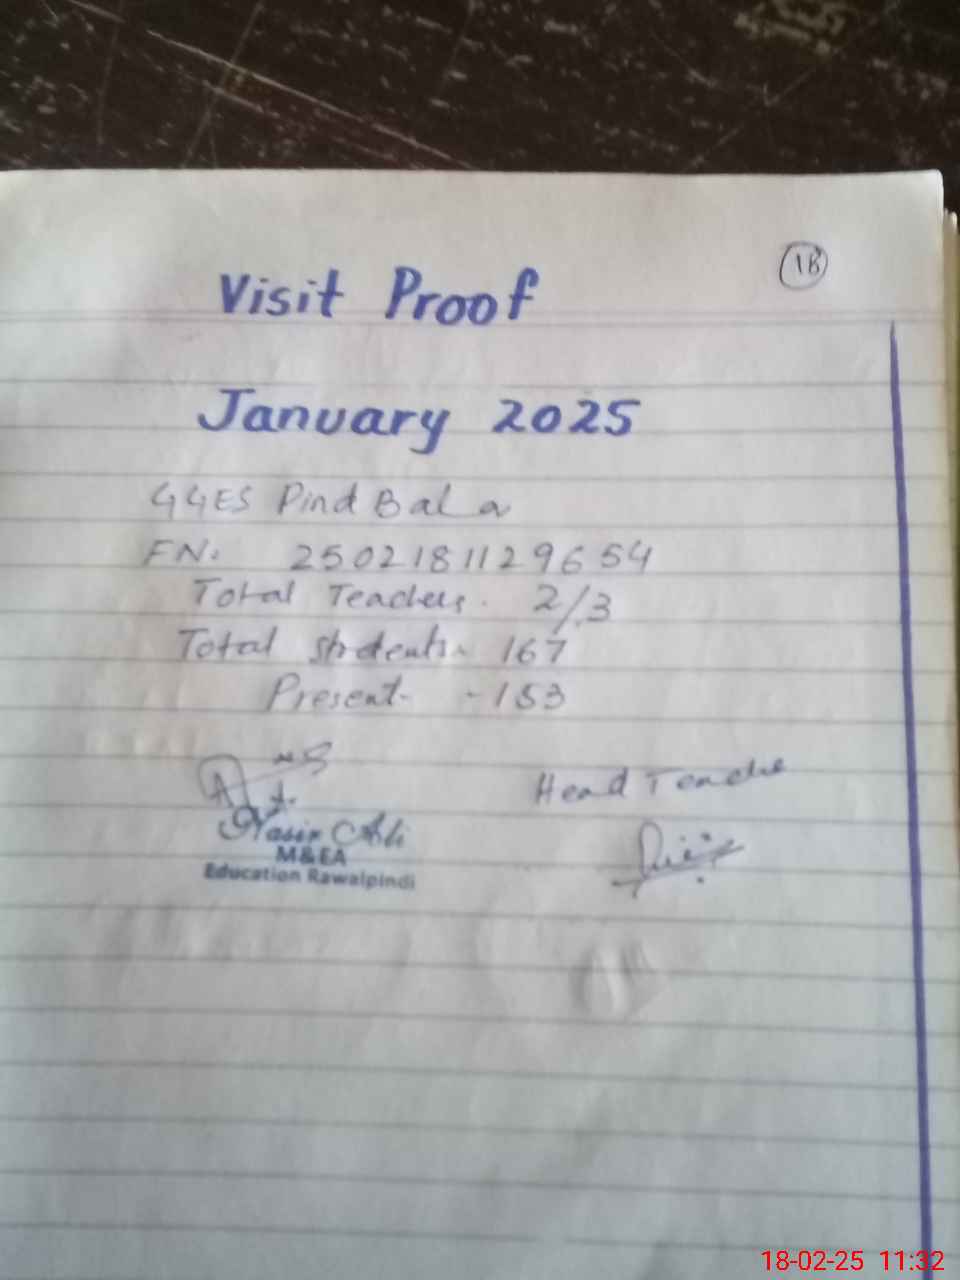 1B
Visit Proof
January 2025
GGES Pind Bala
FN. 2502181129654
Total Teachers. 2/3
Total Students. 167
Present - 153
Head Teache
Nasir Ali
M&EA
Education Rawalpindi
18-02-25 11:32